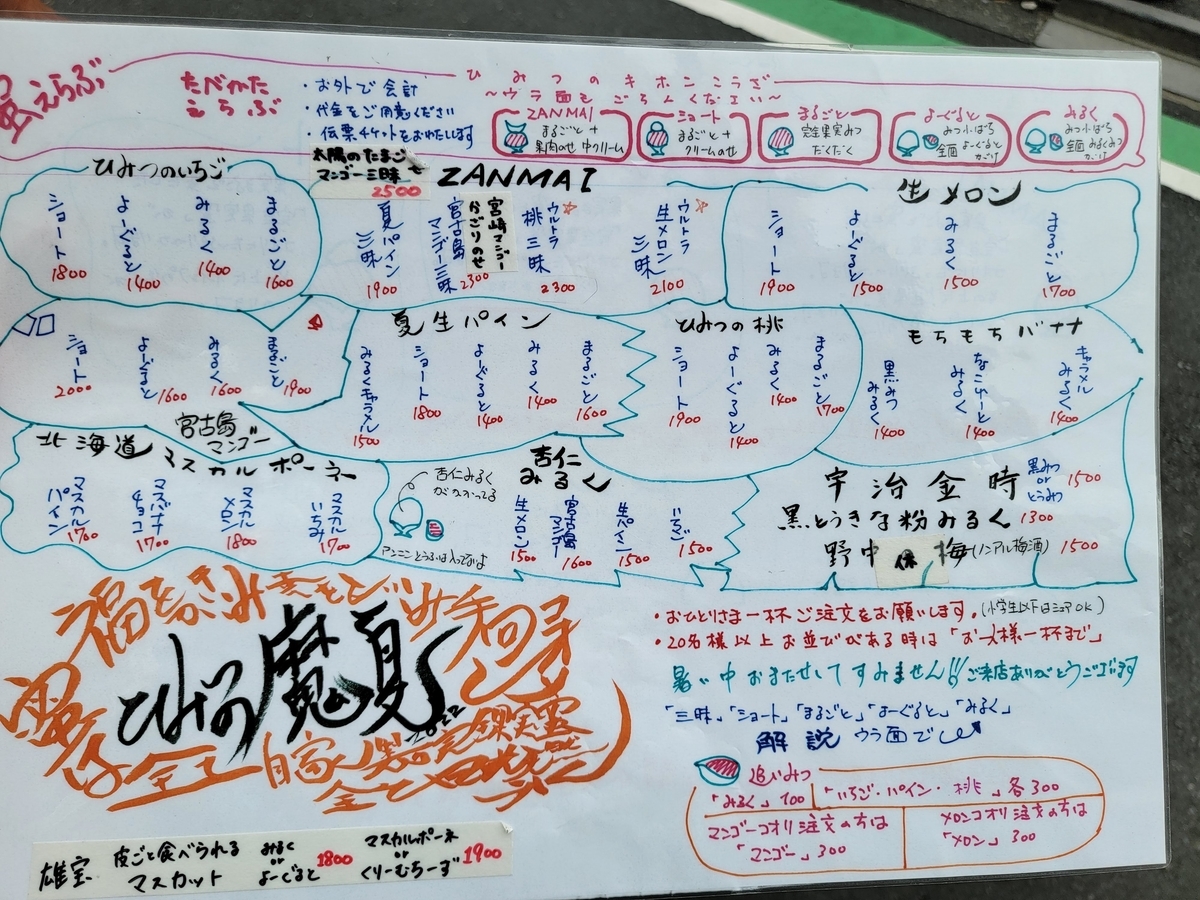 蜜えらぶ
たべかた
えらぶ
・お外で会計
・代金をご用意ください
・伝票チケットをおわたしします
ひみつのキホンこうざ
～ウラ面もごらんください～
ZANMAI
まるごと＋
果肉のせ 中クリーム
ショート
まるごと＋
クリームのせ
まるごと
完全果実みつ
だくだく
よーぐると
みつ小ばち
全面 よーぐると
がけ
みるく
みつ小ばち
全面 みるくみつ
がけ
ひみつのいちご
ショート 1800
よーぐると 1400
みるく 1400
まるごと 1600
太陽のたまご
マンゴー三昧
2500
ZANMAI
夏パイン
三昧
1900
宮古島
マンゴー三昧
2300
宮崎マンゴー
かざりのせ
ウルトラ
桃三昧
2300
ウルトラ
生メロン
三昧
2100
生メロン
ショート 1900
よーぐると 1500
みるく 1500
まるごと 1700
ショート 2000
よーぐると 1600
みるく 1600
まるごと 1900
宮古島
マンゴー
夏生パイン
みるくキャラメル 1500
ショート 1800
よーぐると 1400
みるく 1400
まるごと 1600
ひみつの桃
ショート 1900
よーぐると 1400
みるく 1400
まるごと 1700
もちもちバナナ
黒みつ
みるく
1400
みるく
1400
キャラメル
みるく
1400
北海道マスカルポーネ
マスカル
パイン
1700
マスバナナ
チョコ
1700
マスカル
メロン
1800
マスカル
いちみ
1700
杏仁
みるく
杏仁みるく
がかかってる
アンニンとうふは入ってないよ
生メロン 1500
宮古島
マンゴー
1600
生パイン 1500
いちご 1500
宇治金時
黒みつ
or
とうみつ
1500
黒とうきな粉みるく 1300
野中 休 梅(ノンアル梅酒) 1500
ひみつの魔夏
2022
・おひとりさま一杯ご注文をお願いします。(小学生以下はシェアOK)
・20名様以上お並びがある時は「お一人様一杯まで」
暑い中おまたせしてすみません!!ご来店ありがとうございます
「三昧」「ショート」「まるごと」「よーぐると」「みるく」
解説 ウラ面で
追いみつ
「みるく」100
「いちご・パイン・桃」各300
マンゴーコオリ注文の方は
「マンゴー」300
メロンコオリ注文の方は
「メロン」300
雄宝
皮ごと食べられる
マスカット
みるく
or
よーぐると
1800
マスカルポーネ
or
くりーむちーず
1900